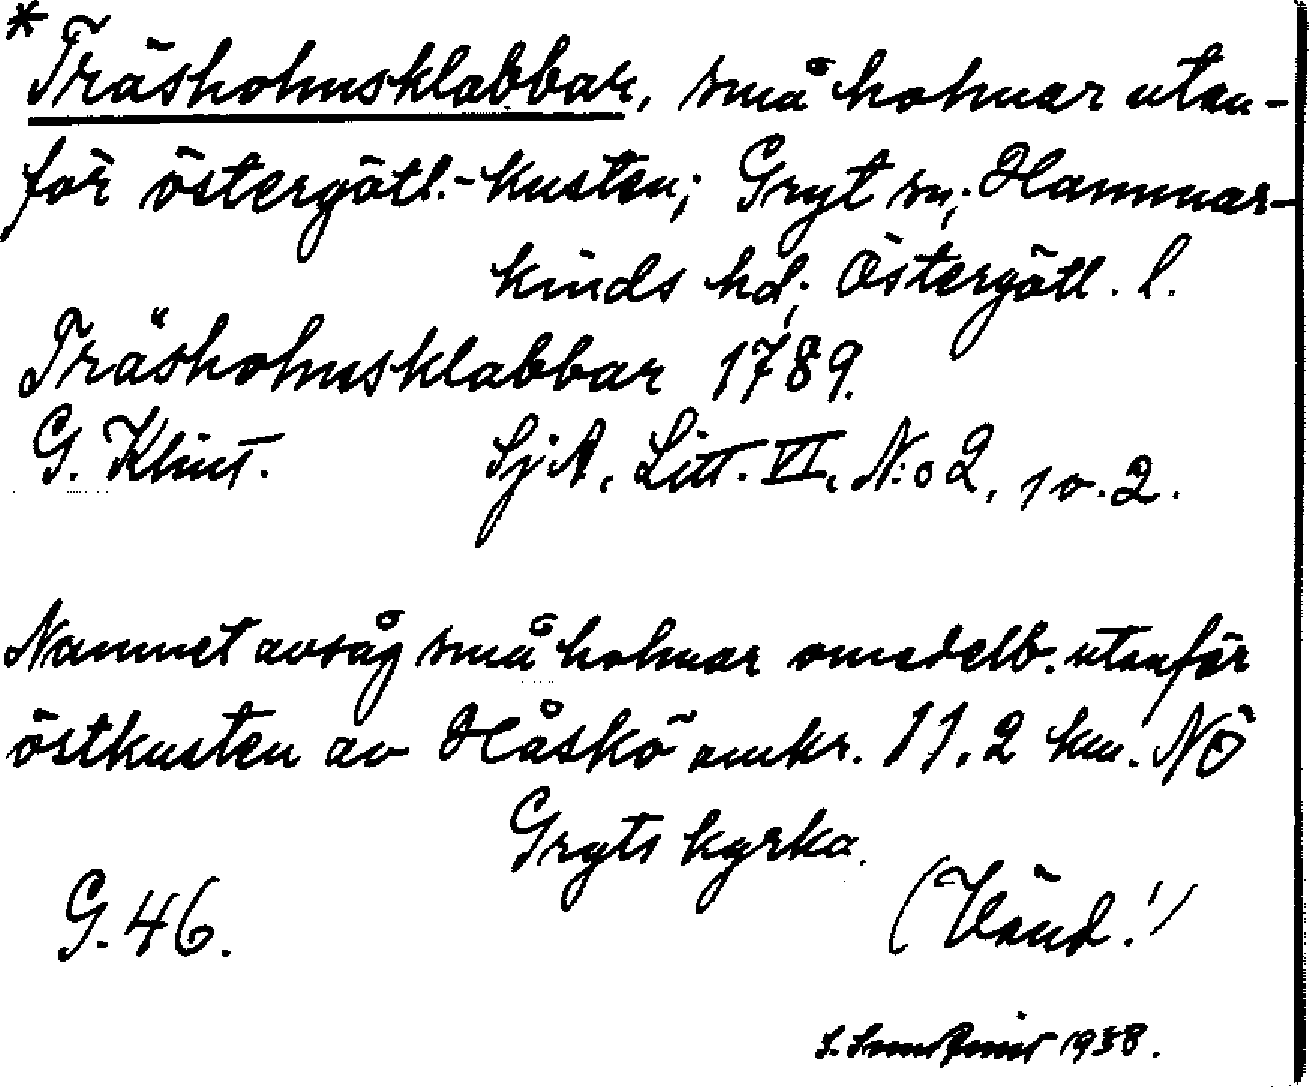 *Träsholmsklabbar, små holmar utan-
för östergötl.-kusten; Gryt sn; Hammar-
kinds hd; Östergötl. l.
Träsholmsklabbar 1789.
G. Klint. SjA, Litt. VI, N:o 2, 1 o. 2.
Namnet avsåg små holmar omedelb. utanför
östkusten av Håskö omkr. 11,2 km. NÖ
Gryts kyrka.
G. 46. (Vänd!)
1938.